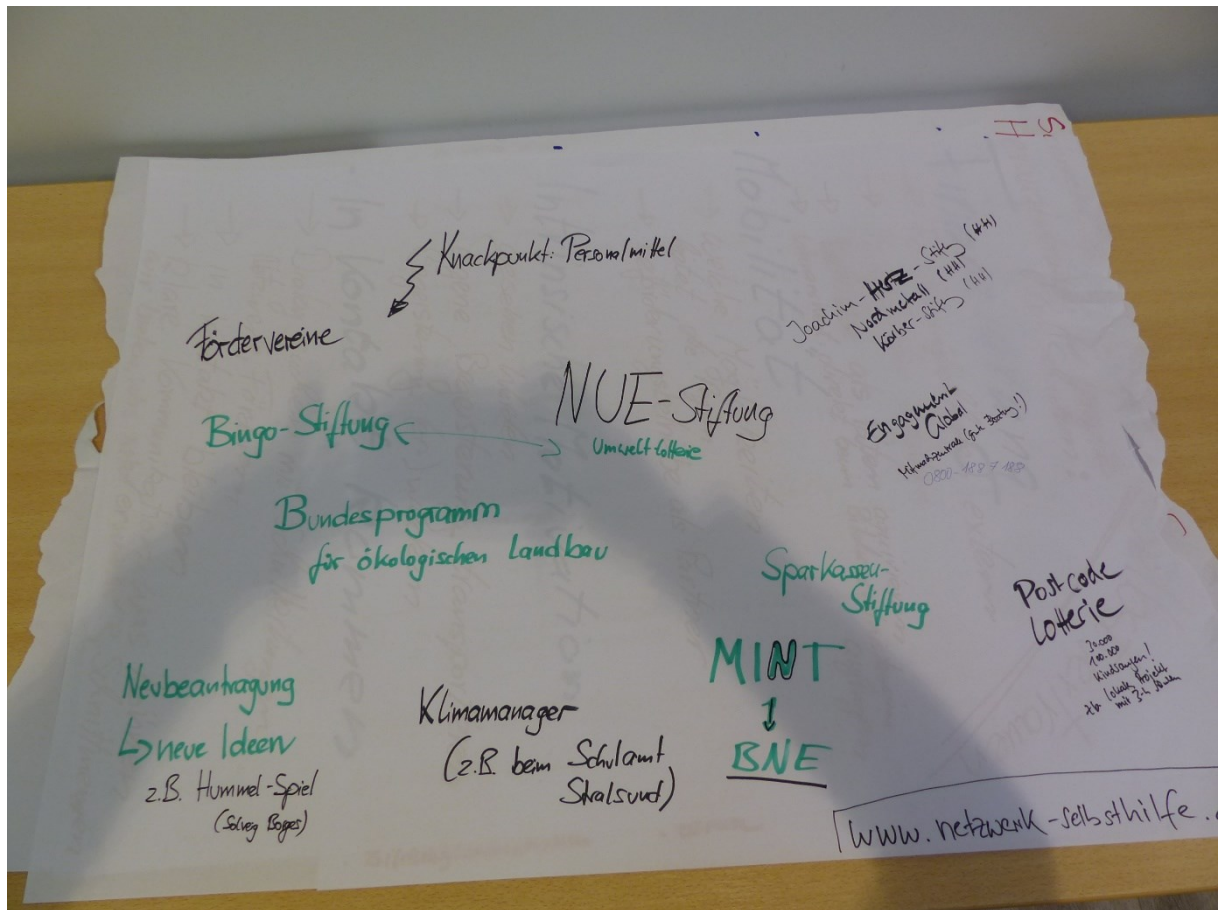 Knackpunkt: Personalmittel
Fördervereine
Joachim-Herz-Stiftg (HH)
Nordmetall (HH)
Körber-Stiftg (HH)
NUE-Stiftung
Umweltlotterie
Bingo-Stiftung
Engagement
Global
Mitmachzentrale (gute Beratung!)
Bundesprogramm
für ökologischen Landbau
Sparkassen-
Stiftung
Postcode
Lotterie
30.000
100.000
lokales Projekt
mit
MINT
↓
BNE
Neubeantragung
↳ neue Ideen
z.B. Hummel-Spiel
Klimamanager
(z.B. beim Schulamt
Stralsund)
www.netzwerk-selbsthilfe.